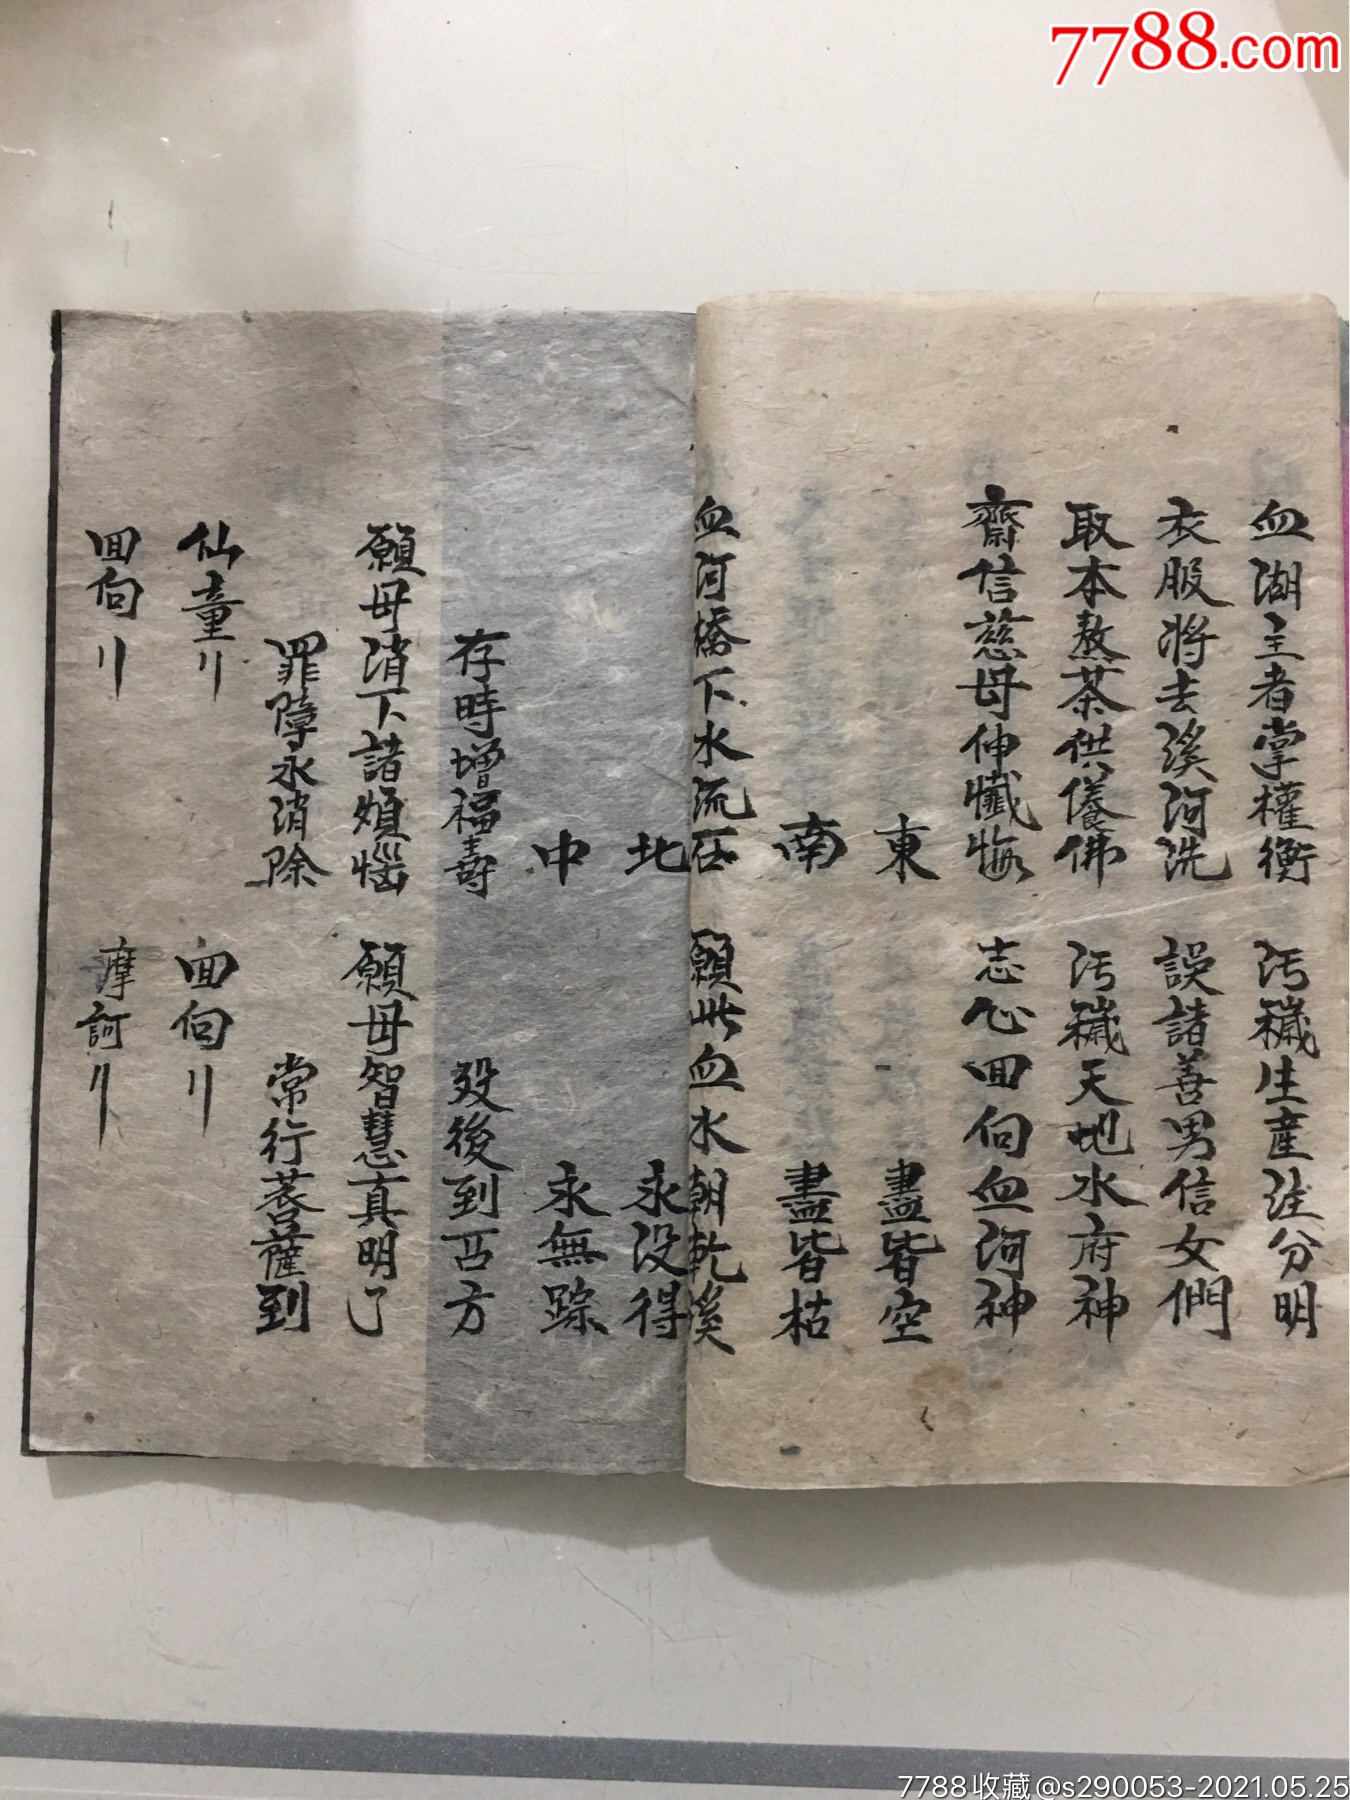 7788.com
血湖主者掌權衡 污穢生產注分明
衣服將去溪河洗 誤諸善男信女們
取本熬茶供養佛 污穢天地水府神
齋信慈母伸懺悔 志心回向血河神
東 盡皆空
南 盡皆枯
血河橋下水流石 願此血水朝乾溪
北 永没得
中 永無踪
存時增福壽 歿後到西方
願母消下諸煩惱 願母智慧真明了
罪障永消除 常行菩薩到
仙童〢 回向〢
回向〢 摩訶〢
7788收藏@s290053-2021.05.25